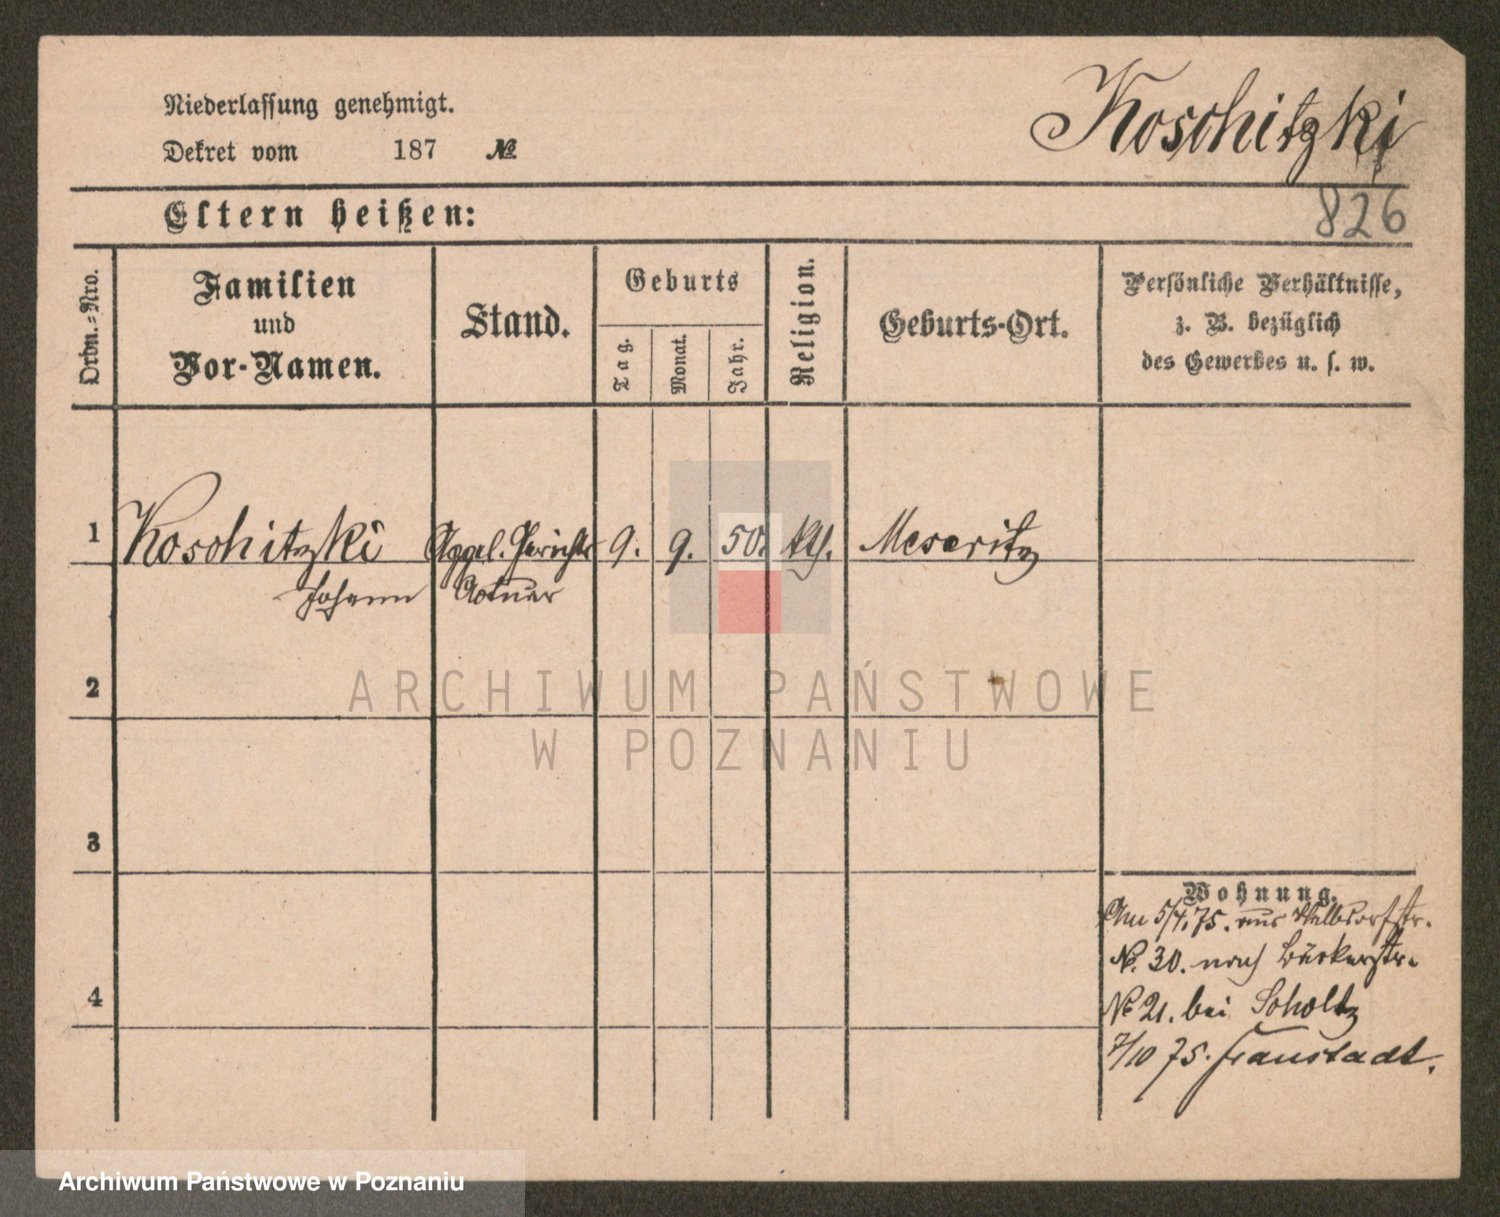 Niederlassung genehmigt.
Koschitzki
Dekret vom 187 №
Eltern heißen:
826
Ordn.-Nro.
Familien
und
Vor-Namen.
Stand.
Geburts
Tag.
Monat.
Jahr.
Religion.
Geburts-Ort.
Persönliche Verhältnisse,
z. B. bezüglich
des Gewerbes u. s. w.
1 Koschitzki Appel. Gerichts 9. 9. 50. kth. Meseritz
Johann Actuar
ARCHIWUM PAŃSTWOWE
W POZNANIU
2
3
4
Wohnung.
Am 5/4.75. aus Halbdorfstr.
№. 30. nach Bäckerstr.
№ 21. bei Scholtz
7/10 75. Fraustadt.
Archiwum Państwowe w Poznaniu